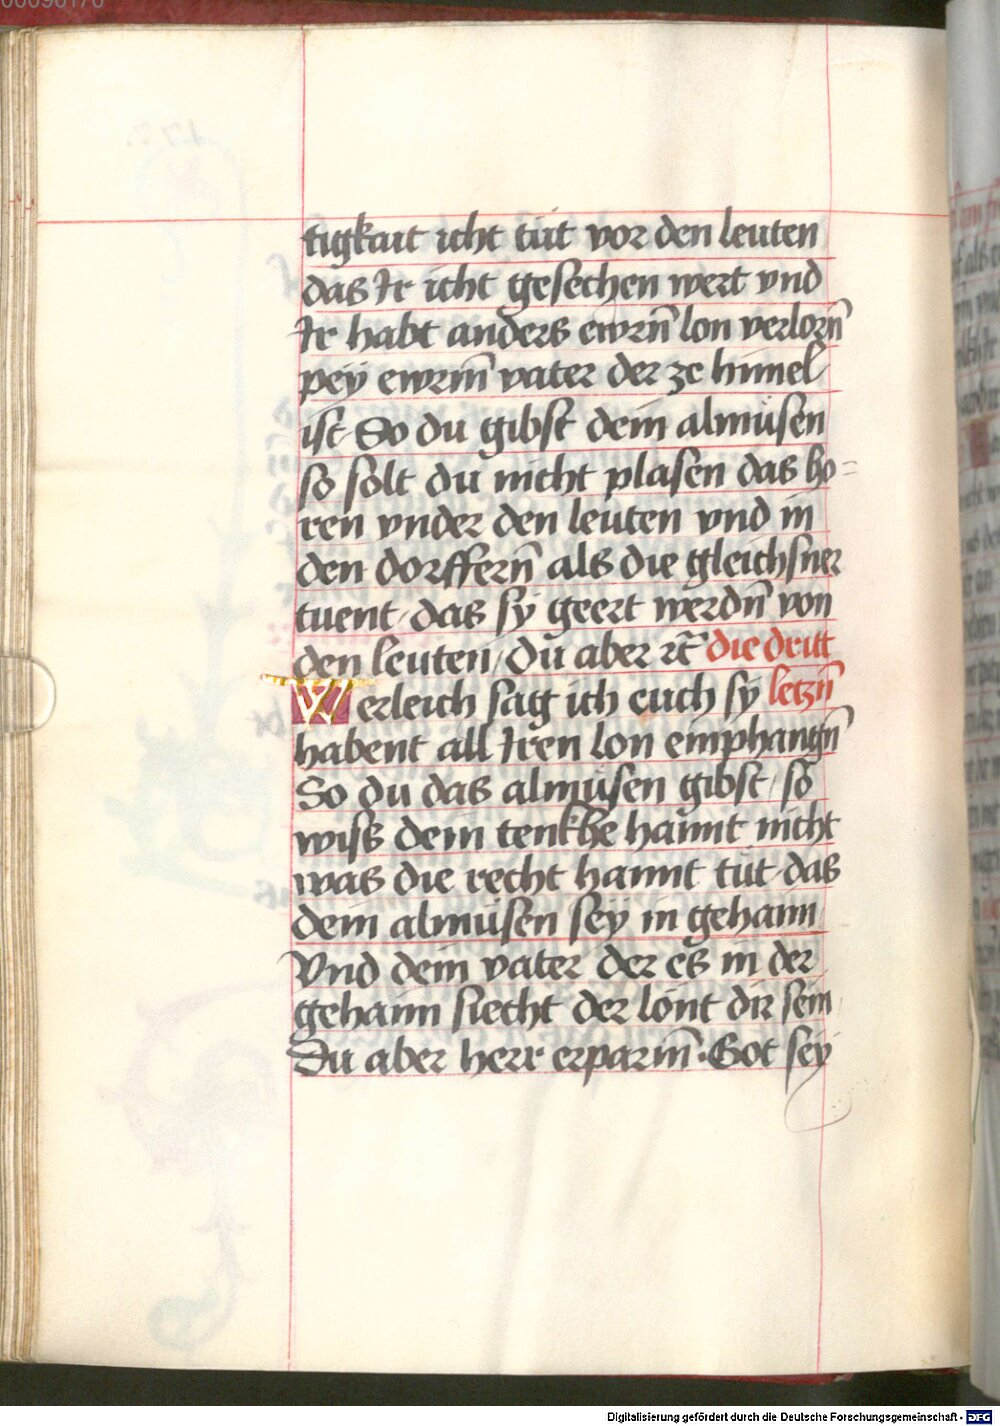 00090170
tigkait icht tůt vor den leuten
das Ir icht gesechen wert vnd
Ir habt anders ewrn̄ lon verlorn̄
pey ewrm̄ vater der ze himel
ist So du gibst dein almůsen
so solt du nicht plasen das ho=
ren vnder den leuten vnd in
den dorffern̄ als die gleichsner
tuent das sy geert werdn̄ von
den leuten Du aber rc̄ die dritt
Werleich sag ich euch sy letzn̄
habent all Iren lon emphangn̄
So du das almůsen gibst so
wiss dein tenkhe hannt nicht
was die recht hannt tůt das
dein almůsen sey in gehaim
Vnd dein vater der es in der
gehaim siecht der lont dir sein
Du aber herr erparm̄ Got sey
Digitalisierung gefördert durch die Deutsche Forschungsgemeinschaft - DFG